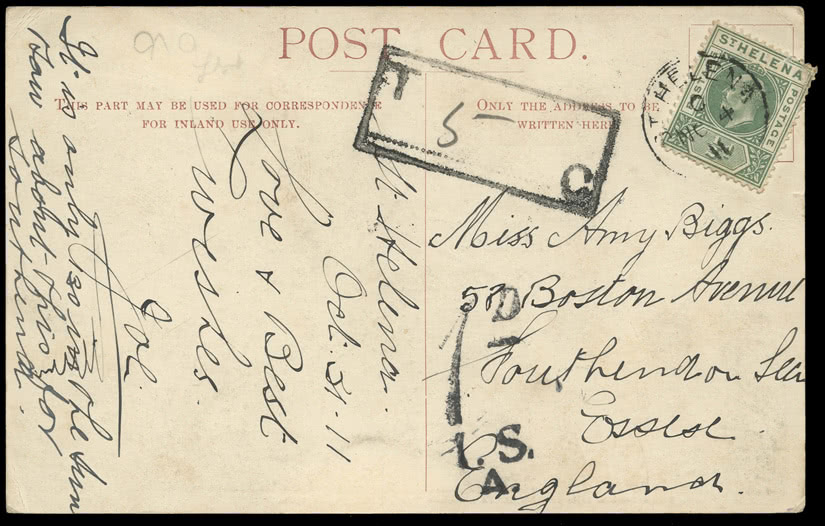 POST CARD.
THIS PART MAY BE USED FOR CORRESPONDENCE
FOR INLAND USE ONLY.
ONLY THE ADDRESS TO BE
WRITTEN HERE
ST HELENA
POSTAGE
ST HELENA
4
11
T
5
C
St Helena.
Oct. 31-11
Love & Best
Wishes
Joe.
It is only
about
for
Southend.
Miss Amy Biggs.
Boston Avenue
Southend on Sea
Essex
England.
1 D
I.S.
A.